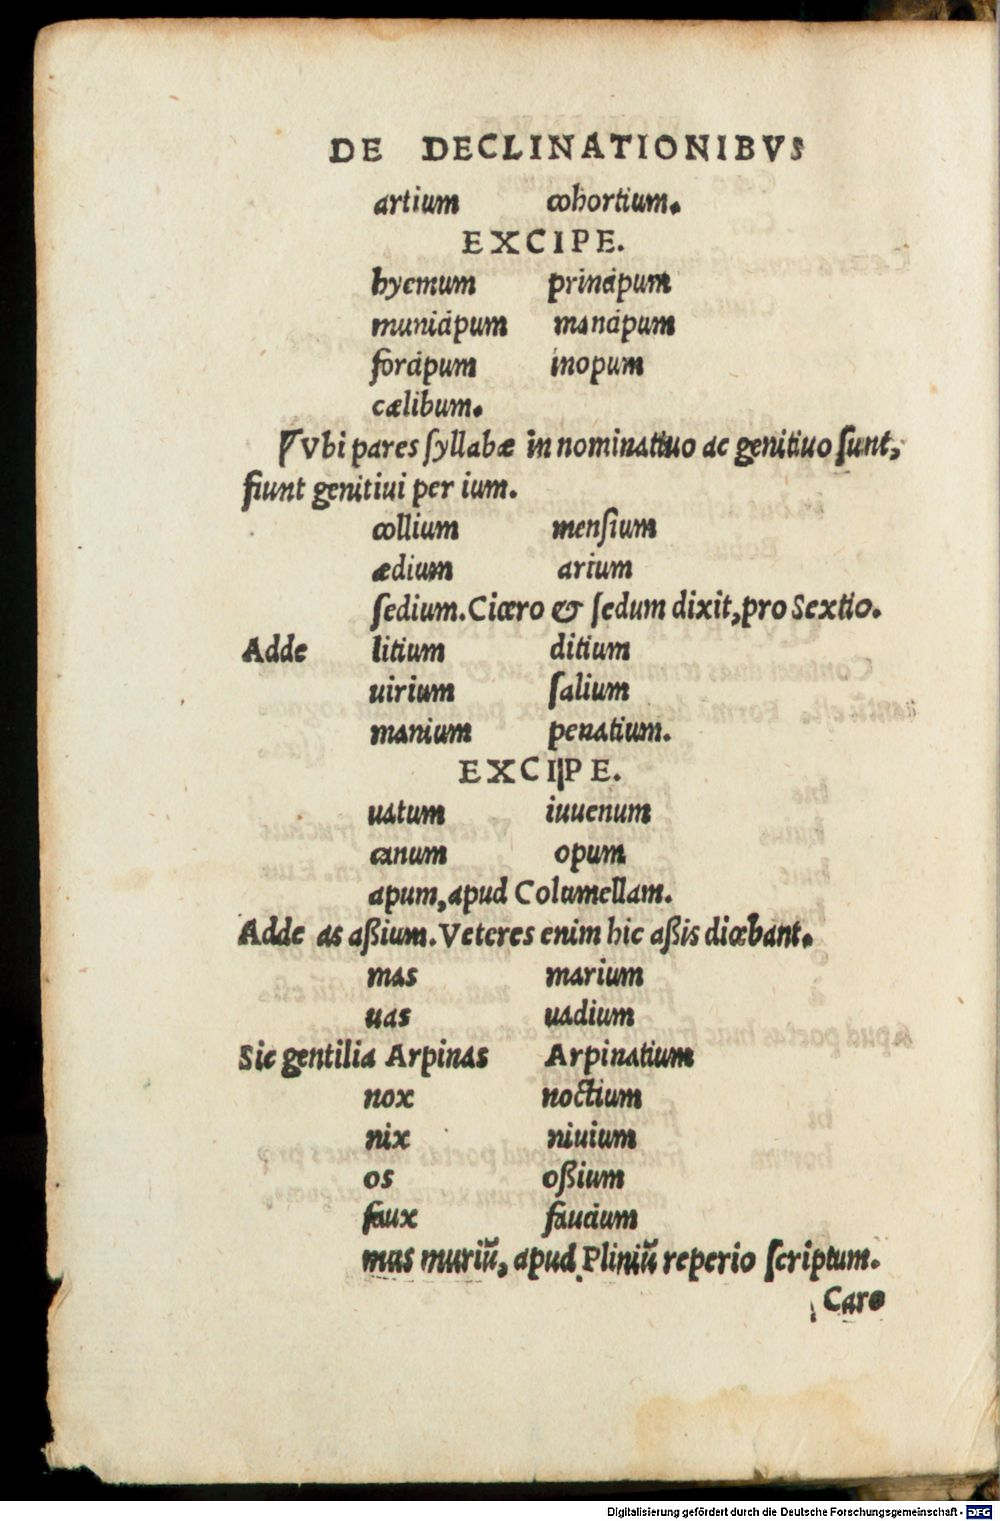 DE DECLINATIONIBVS
artium cohortium.
EXCIPE.
hyemum principum
municipum mancipum
forcipum inopum
cælibum.
Vbi pares ſyllabæ in nominatiuo ac genitiuo ſunt,
fiunt genitiui per ium.
collium menſium
ædium arium
ſedium. Cicero & ſedum dixit, pro Sextio.
Adde litium ditium
uirium ſalium
manium penatium.
EXCIPE.
uatum iuuenum
canum opum
apum, apud Columellam.
Adde as aßium. Veteres enim hic aßis dicebant.
mas marium
uas uadium
Sic gentilia Arpinas Arpinatium
nox noctium
nix niuium
os oßium
faux faucium
mus muriū, apud Pliniū reperio ſcriptum.
Caro
Digitalisierung gefördert durch die Deutsche Forschungsgemeinschaft - DFG